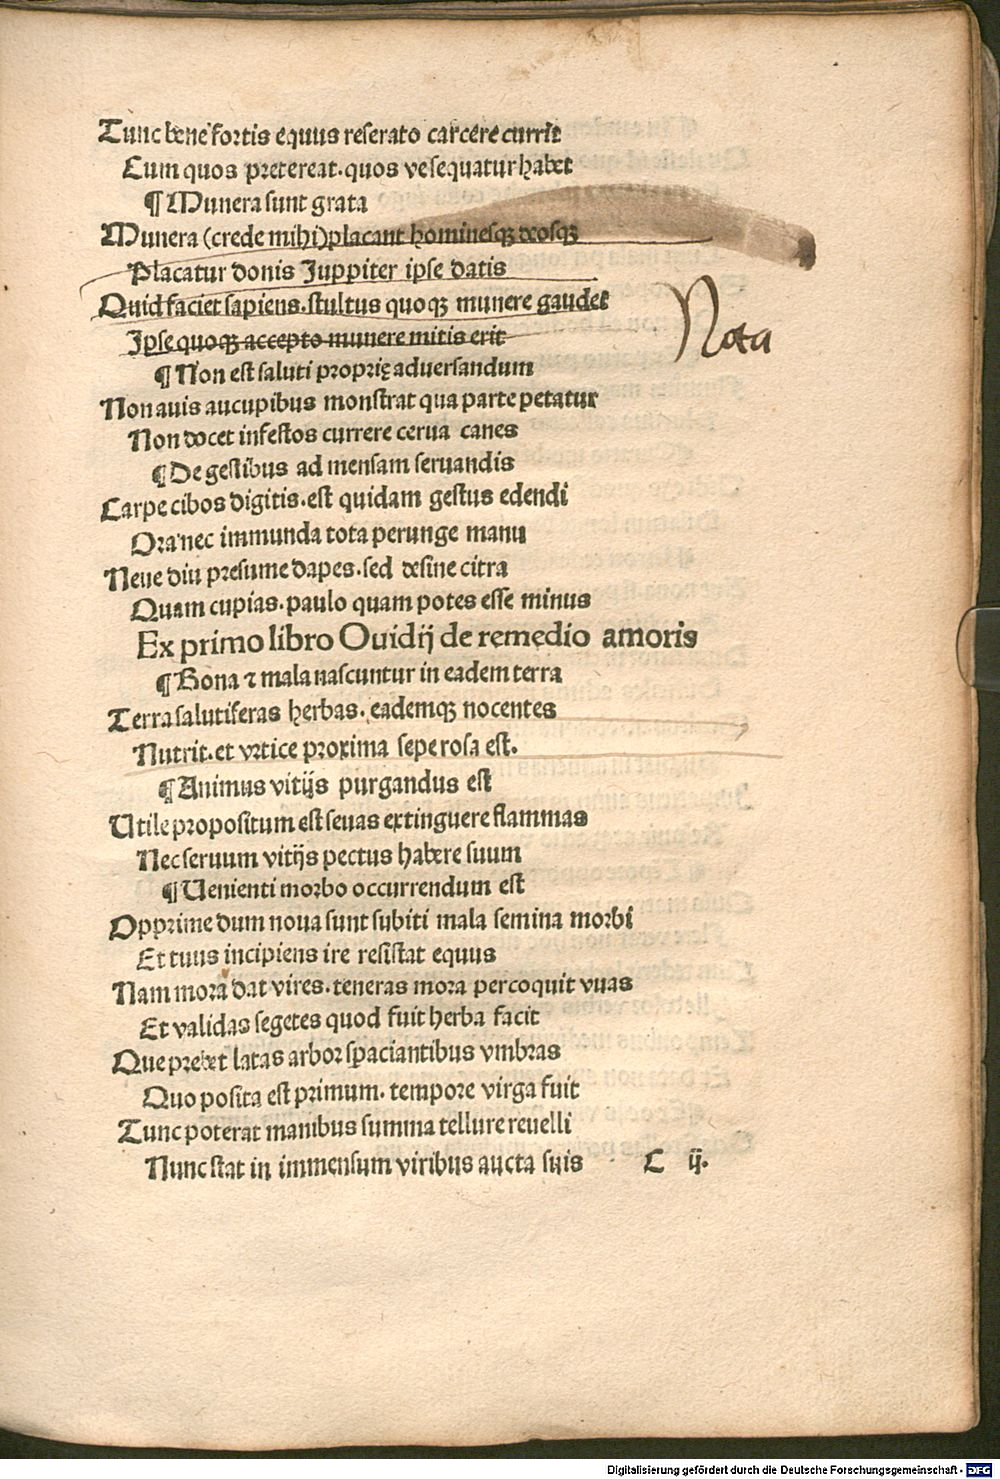 Tunc bene fortis equus reserato carcere currit
Cum quos pretereat. quos ve sequatur habet
¶ Munera sunt grata
Munera (crede mihi) placant hominesqꝫ deosqꝫ
Placatur donis Juppiter ipse datis
Quid faciet sapiens. stultus quoqꝫ munere gaudet
Nota
Ipse quoqꝫ accepto munere mitis erit
¶ Non est saluti proprię aduersandum
Non auis aucupibus monstrat qua parte petatur
Non docet infestos currere cerua canes
¶ De gestibus ad mensam seruandis
Carpe cibos digitis. est quidam gestus edendi
Ora nec immunda tota perunge manu
Neue diu presume dapes. sed desine citra
Quam cupias. paulo quam potes esse minus
Ex primo libro Ouidij de remedio amoris
¶ Bona ⁊ mala nascuntur in eadem terra
Terra salutiferas herbas. eademqꝫ nocentes
Nutrit. et vrtice proxima sepe rosa est.
¶ Animus vitijs purgandus est
Utile propositum est seuas extinguere flammas
Nec seruum vitijs pectus habere suum
¶ Uenienti morbo occurrendum est
Opprime dum noua sunt subiti mala semina morbi
Et tuus incipiens ire resistat equus
Nam mora dat vires. teneras mora percoquit vuas
Et validas segetes quod fuit herba facit
Que prebet latas arbor spaciantibus vmbras
Quo posita est primum. tempore virga fuit
Tunc poterat manibus summa tellure reuelli
Nunc stat in immensum viribus aucta suis C ij.
Digitalisierung gefördert durch die Deutsche Forschungsgemeinschaft - DFG